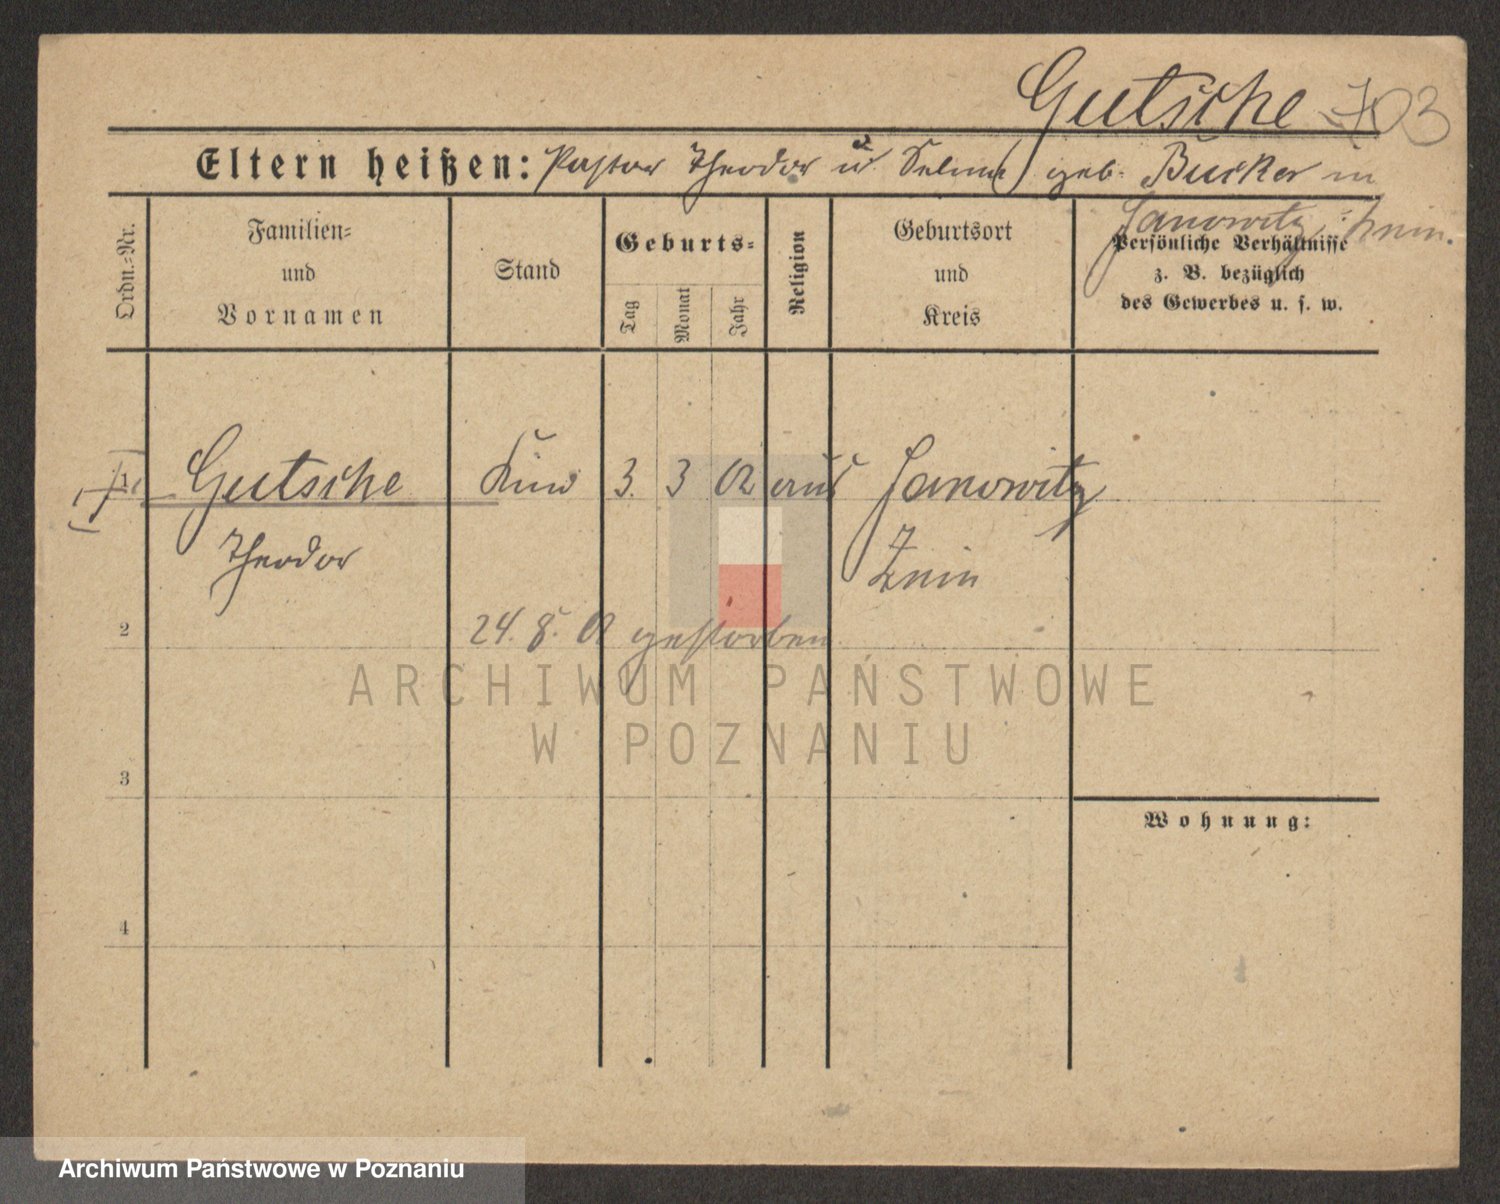 Gutsche 703
Eltern heißen: Pastor Theodor u Selma geb. Bucker in
Janowitz Znin.
Ordn.-Nr.
Familien-
und
Vornamen
Stand
Geburts-
Tag
Monat
Jahr
Religion
Geburtsort
und
Kreis
Persönliche Verhältnisse
z. B. bezüglich
des Gewerbes u. s. w.
1 Gutsche Kind 3. 3 02 Janowitz
Theodor Znin
2 24. 8. 02 gestorben
ARCHIWUM PAŃSTWOWE
W POZNANIU
3
Wohnung:
4
Archiwum Państwowe w Poznaniu